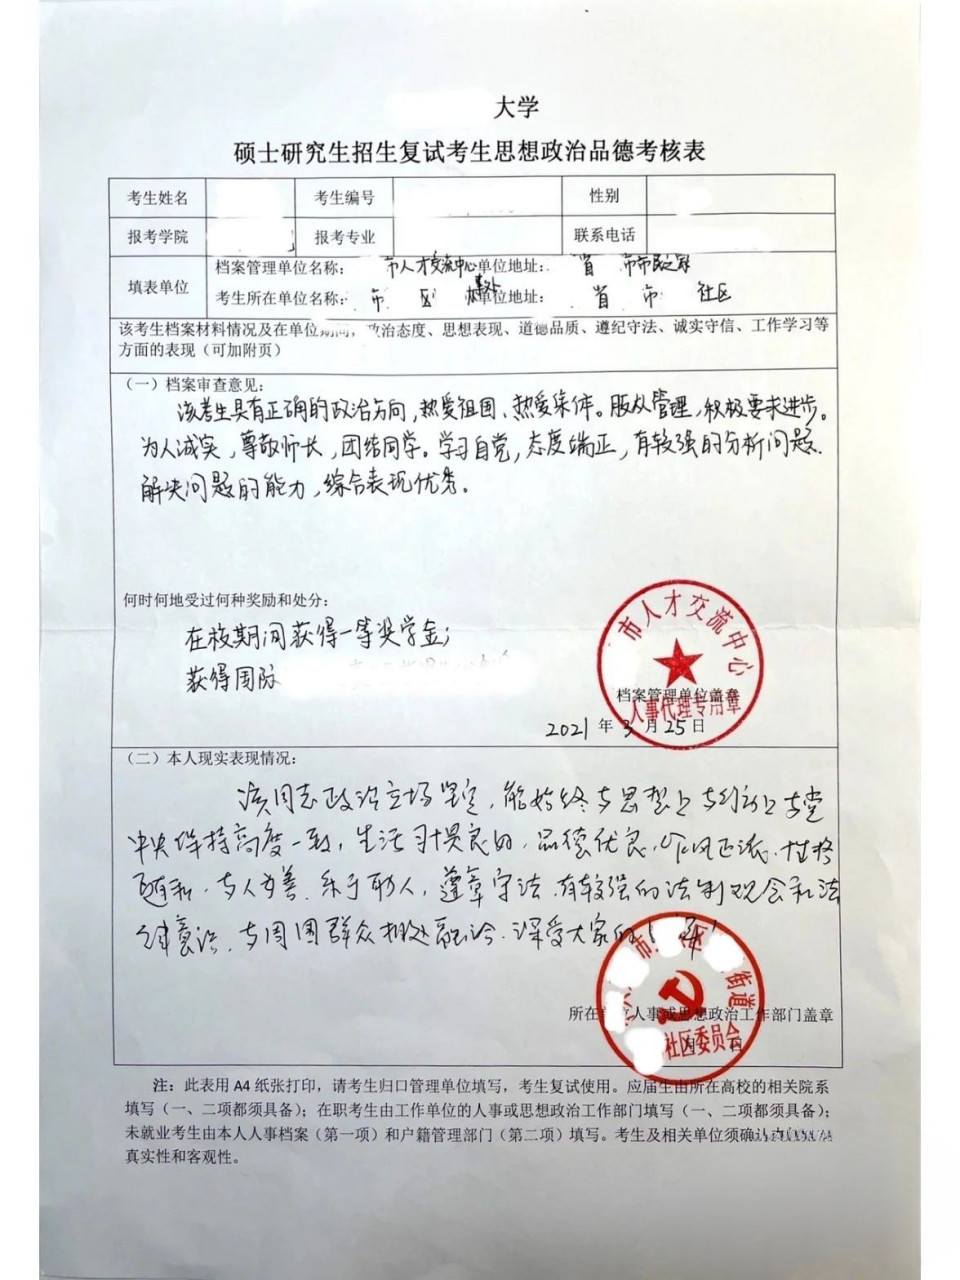 大学
硕士研究生招生复试考生思想政治品德考核表
考生姓名 考生编号 性别
报考学院 报考专业 联系电话
填表单位
档案管理单位名称: 市人才交流中心 单位地址: 省 市市民之家
考生所在单位名称: 市 区 单位地址: 省 市 社区
该考生档案材料情况及在单位期间,政治态度、思想表现、道德品质、遵纪守法、诚实守信、工作学习等
方面的表现(可加附页)
(一)档案审查意见:
该考生具有正确的政治方向,热爱祖国、热爱集体。服从管理,积极要求进步。
为人诚实,尊敬师长,团结同学。学习自觉,态度端正,有较强的分析问题.
解决问题的能力,综合表现优秀。
何时何地受过何种奖励和处分:
在校期间获得一等奖学金;
获得国际
市人才交流中心
档案管理单位盖章
人事代理专用章
2021年3月25日
(二)本人现实表现情况:
该同志政治立场坚定,能始终在思想上与行动上与党
中央保持高度一致,生活习惯良好,品德优良,作风正派.性格
随和.与人为善.乐于助人,遵章守法.有较强的法制观念和法
律意识.与周围群众相处融洽.深受大家的
市 区 街道
所在 人事或思想政治工作部门盖章
社区委员会
日
注:此表用 A4 纸张打印,请考生归口管理单位填写,考生复试使用。应届生由所在高校的相关院系
填写(一、二项都须具备);在职考生由工作单位的人事或思想政治工作部门填写(一、二项都须具备);
未就业考生由本人人事档案(第一项)和户籍管理部门(第二项)填写。考生及相关单位须确认内填内容
真实性和客观性。